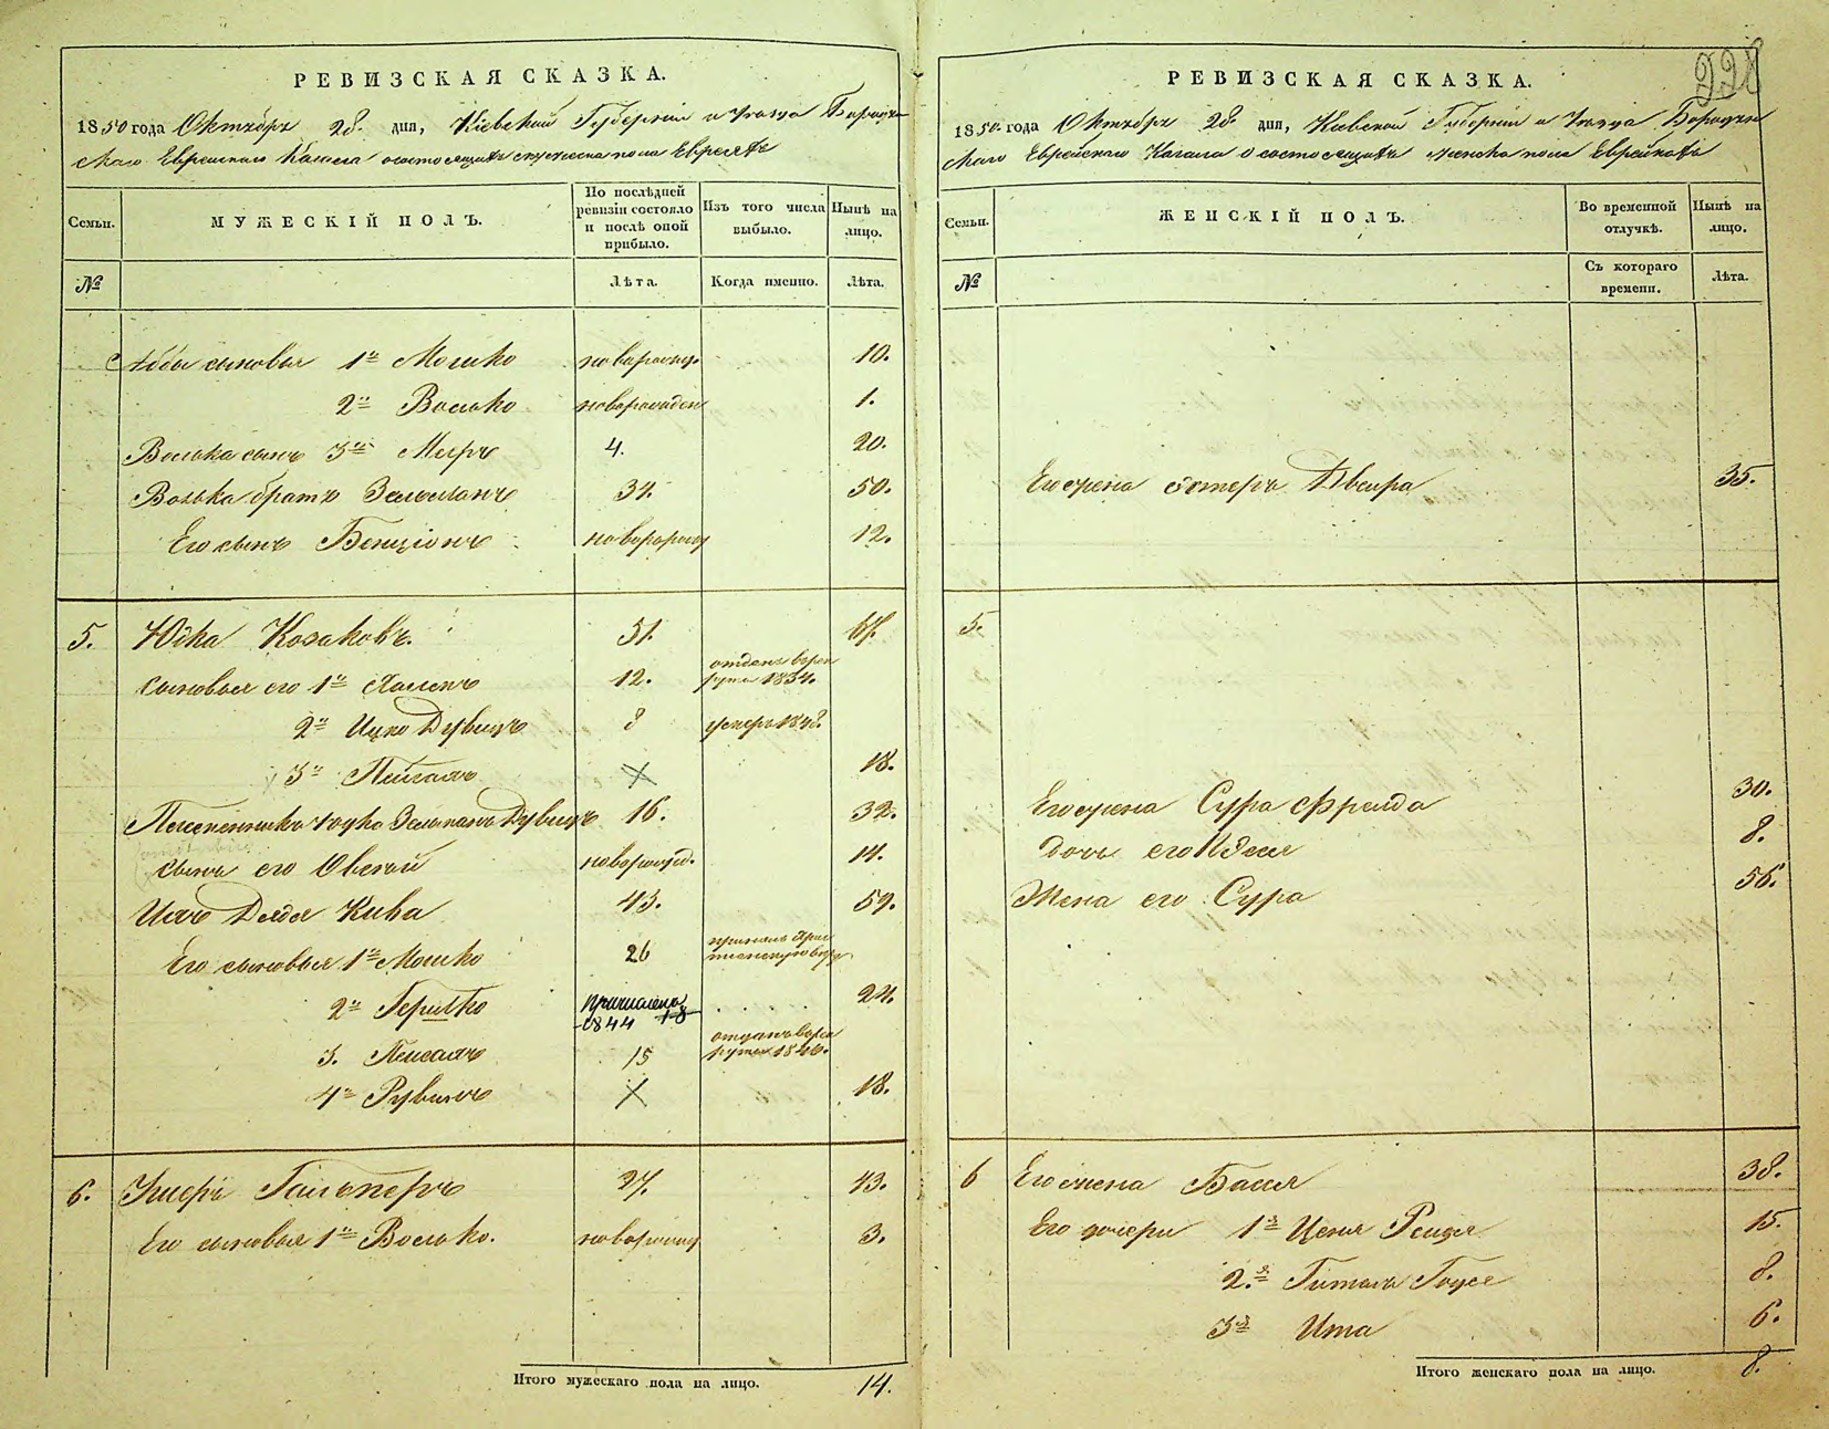 РЕВИЗСКАЯ СКАЗКА.
1850 года Октября 28. дня, Кіевской Губерніи и Уезда Бородян
скаго Еврейскаго Кагала о состоящихъ мужеска пола Евреяхъ
Семьи.
МУЖЕСКІЙ ПОЛЪ.
По послѣдней ревизіи состояло и послѣ оной прибыло.
Изъ того числа выбыло.
Нынѣ на лицо.
№
Лѣта.
Когда именно.
Лѣта.
сыновья 1й Мошко новорожд. 10.
2й Волько новорожден 1.
Волька сынъ 3й Мееръ 4. 20.
Волька братъ Зельманъ 34. 50.
Его сынъ Бенціонъ новорожд 12.
5. Юдка Козаковъ. 51. 67.
Сыновья его 1й 12. отданъ въ рек
руты 1834.
2й Ицко Дувидъ 8 умеръ 1848.
3й Пейсахъ X 18.
Племенникъ Юдка Зельманъ Дувидъ 16. 32.
сынъ его Овсей новорожд. 14.
Юдки дядя Кива 43. 59.
Его сыновья 1й Мошко 26 принялъ Хрис
тіанскую веру
2й Гершко причисленъ 1844 18 24.
3. Пейсахъ 15 отданъ въ рек
руты 1846.
4й Рувинъ X 18.
6. Гальперъ 27. 43.
Его сыновья 1й Волько. новорожд 3.
Итого мужескаго пола на лицо. 14.
228
РЕВИЗСКАЯ СКАЗКА.
1850. года Октября 28. дня, Кіевской Губерніи и Уезда Бородян
скаго Еврейскаго Кагала о состоящихъ женска пола Еврейкахъ
Семьи.
ЖЕНСКІЙ ПОЛЪ.
Во временной отлучкѣ.
Нынѣ на лицо.
№
Съ котораго времени.
Лѣта.
Его жена Эстеръ Двейра 35.
5.
Его жена Сура Фрейда 30.
Дочь его 8.
Жена его Сура 56.
6 Его жена Бася 38.
Его дочери 1я Ципа Рейдя 15.
2.я Гитель 8.
3я Ита 6.
Итого женскаго пола на лицо. 8.